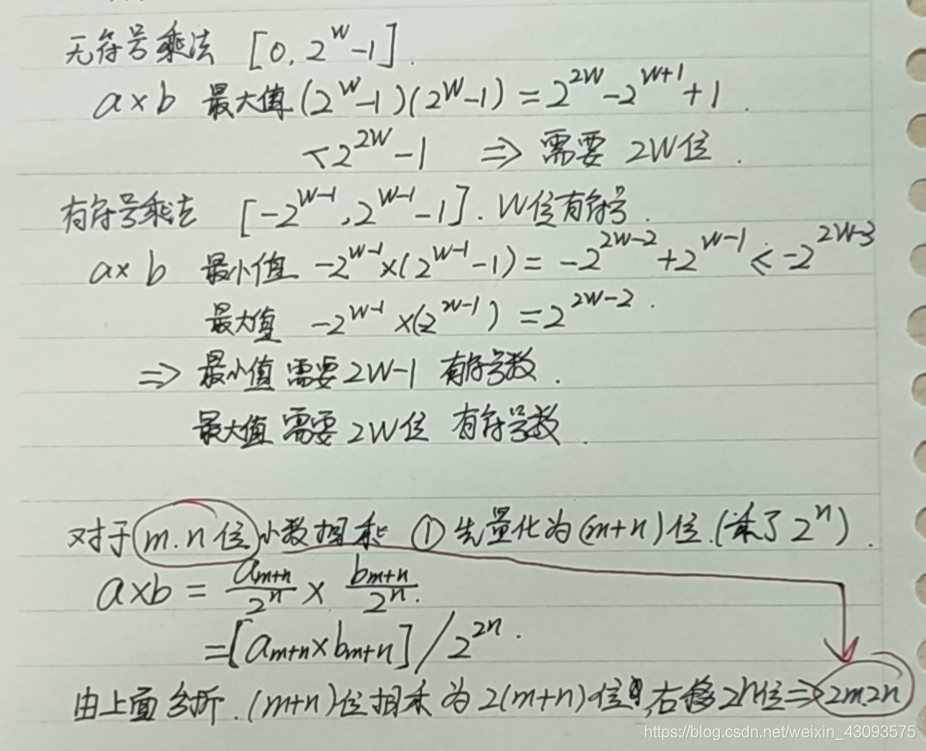 无符号乘法 [0, 2^w-1].
a×b 最大值 (2^w-1)(2^w-1) = 2^{2w}-2^{w+1}+1.
<2^{2w}-1 ⇒ 需要 2W位.
有符号乘法 [-2^{w-1}, 2^{w-1}-1]. W位有符号.
a×b 最小值 -2^{w-1}×(2^{w-1}-1) = -2^{2w-2}+2^{w-1} < -2^{2w-3}
最大值 -2^{w-1}×(2^{w-1}) = 2^{2w-2}.
⇒ 最小值 需要2W-1 有符号数.
最大值 需要2W位 有符号数.
对于 m.n位 小数相乘 ① 先量化为(m+n)位.(乘了2^n).
a×b = a_{m+n}/2^n × b_{m+n}/2^n.
=[a_{m+n}×b_{m+n}]/2^{2n}.
由上面分析.(m+n)位相乘为2(m+n)位 右移2n位⇒2m.2n
https://blog.csdn.net/weixin_43093575